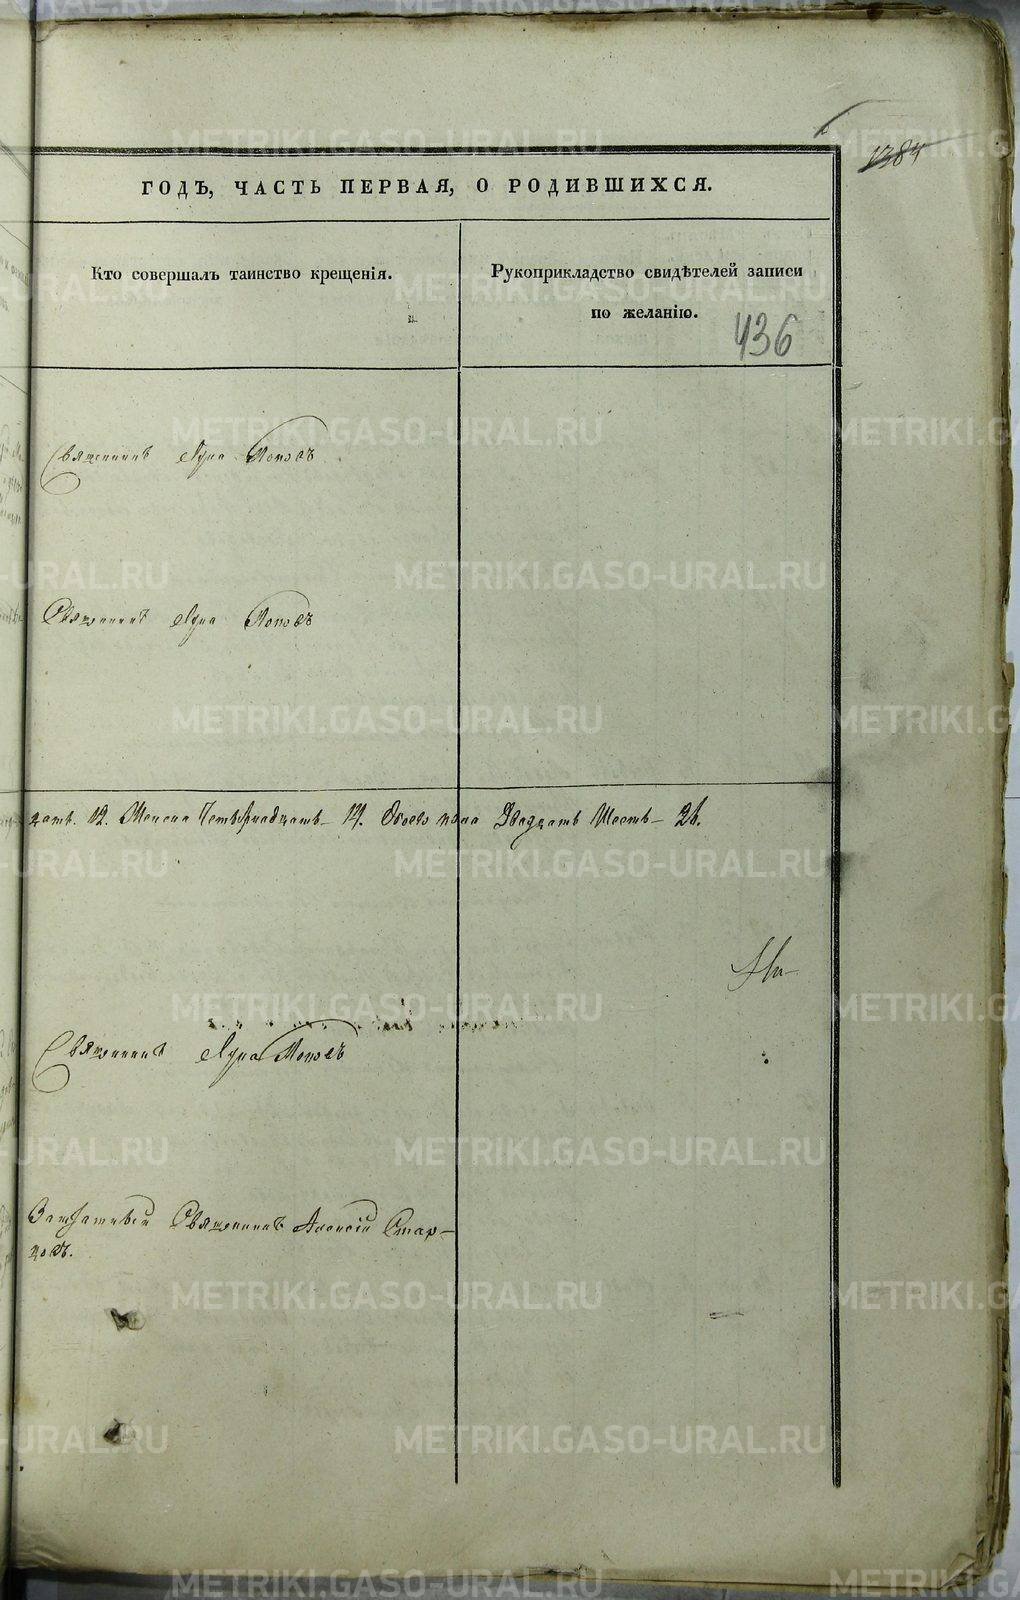 1384
ГОДЪ, ЧАСТЬ ПЕРВАЯ, О РОДИВШИХСЯ.
Кто совершалъ таинство крещенія.
Рукоприкладство свидѣтелей записи
по желанію.
436
Священникъ Лука Поповъ
Священникъ Лука Поповъ
цать. 12. Женска Четырнадцать 14. Обоего пола Двадцать Шесть 26.
Священникъ Лука Поповъ
Заштатный Священникъ Алексій Стар-
цовъ.
METRIKI.GASO-URAL.RU